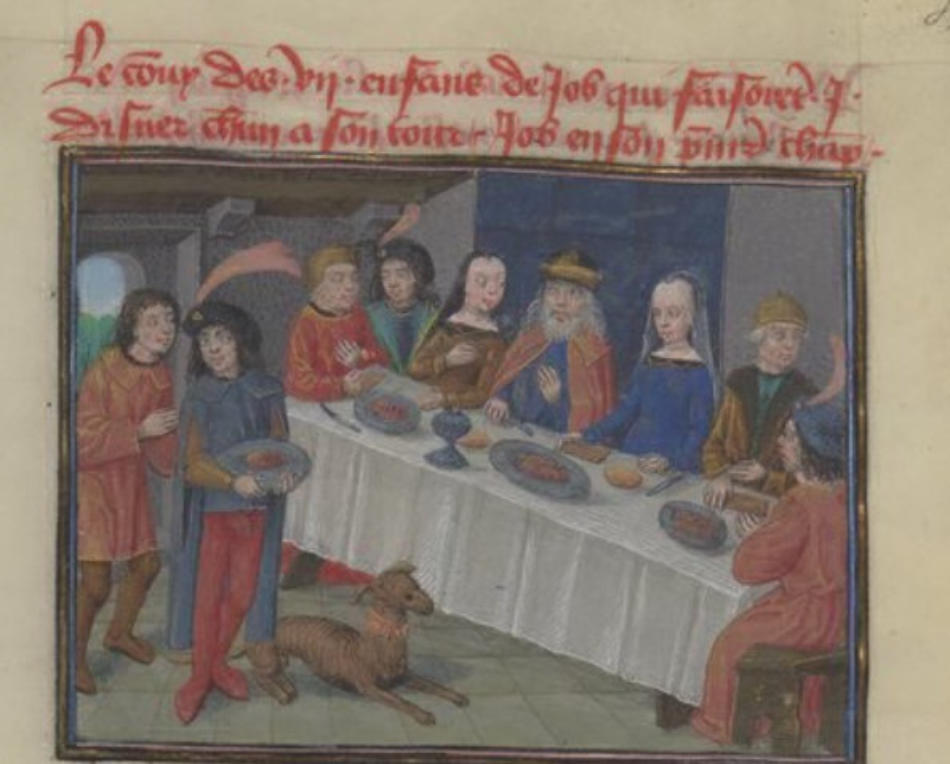 Le tour des .vii. enfans de Job qui faisoient .J.
disner chun a son tour. Job en son pmier chap.